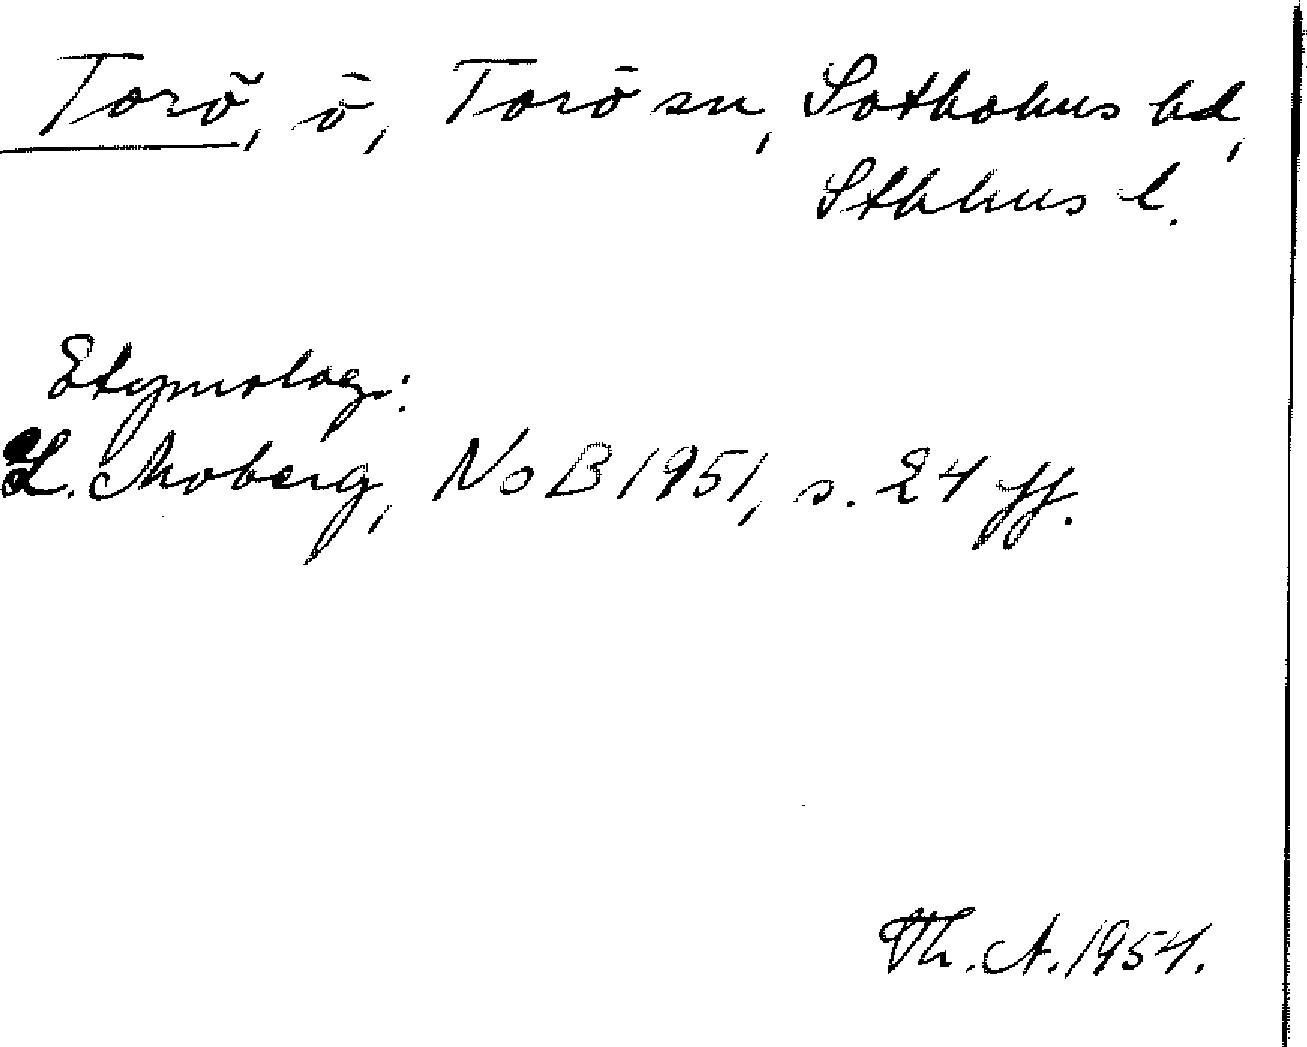 Torö, ö, Torö sn, Sotholms hd,
Sthlms l.
Etymolog.:
L. Moberg, NoB 1951, s. 24 ff.
Th. A. 1954.